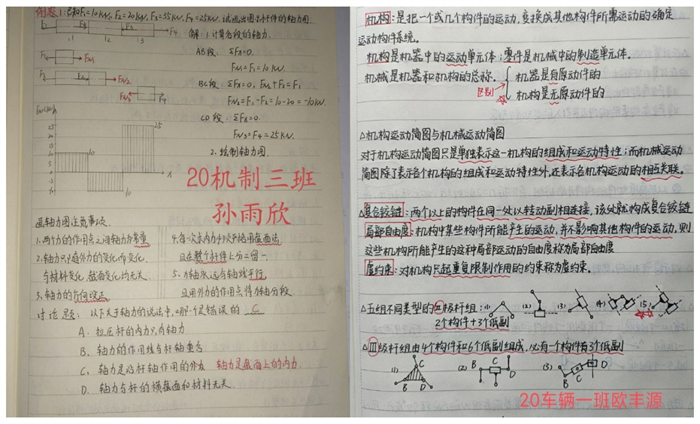 例题1:已知F₁=10kN, F₂=20kN, F₃=35kN, F₄=25kN. 试画出图示杆件的轴力图
解:1. 计算各段的轴力.
AB段. ΣFx=0.
FN1=F1=10kN.
BC段. ΣFx=0, FN2+F2=F1
FN2=F1-F2=10-20=-10kN.
CD段. ΣFx=0.
FN3=F4=25kN.
2. 绘制轴力图.
20机制三班
孙雨欣
画轴力图注意事项
1. 两个力的作用点之间轴力为常量
3. 轴力的
讨论题: 以下关于轴力的说法中, 哪一个是错误的 C
A. 拉压杆的内力只有轴力
B. 轴力的作用线与杆轴重合
C. 轴力是沿杆轴作用的外力 轴力是截面上的内力.
D. 轴力与杆的横截面和材料无关.
机构:是把一个或几个构件的运动, 变换成其他构件所需运动的确定
运动构件系统.
构件是机器中的运动单元体; 零件是机械中的制造单元体.
机械是机器和机构的总称.
区别
机器是有原动件的
机构是无原动件的
△机构运动简图与机械运动简图
对于机构运动简图只是单独表示这一机构的组成和运动特性; 而机械运动
简图除了表示各个机构的组成和运动特性外, 还表示各机构运动的相互关联.
△复合铰链:两个以上的构件在同一处以转动副相连接, 该处就构成复合铰链
局部自由度:机构中某些构件所能产生的运动, 并不影响其他构件的运动, 则
这些构件所能产生的这种局部运动的自由度称为局部自由度
虚约束:对机构只起重复限制作用的约束称为虚约束.
△五组不同类型的Ⅱ级杆组: (1) (2) (3) (4) (5)
2个构件+3个低副
△Ⅲ级杆组由4个构件和6个低副组成, 必有一个构件有3个低副
(1) (2) (3)
20车辆一班欧丰源